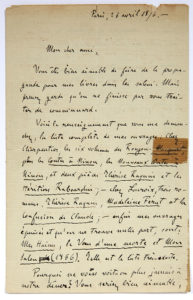 Paris, 21 avril 187
Mon cher ami,
Vous êtes bien aimable de faire de la propa-
gande pour mes livres dans les salons. Mais
prenez garde qu'on ne finisse par vous trai-
ter de communard.
Voici le renseignement que vous me deman-
dez, la liste complète de mes ouvrages. Chez
Charpentier les six volumes du Rougon-Macquart
plus les Contes à Ninon, les Nouveaux Contes à
Ninon, et deux pièces Thérèse Raquin et les
Héritiers Rabourdin; — chez Lacroix, trois ro-
mans: Thérèse Raquin, Madeleine Férat et la
Confession de Claude; — enfin mes ouvrages
épuisés et qu'on ne trouve nulle part, sont:
Mes Haines, le Vœu d'une morte et Mon
Salon (1866). Telle est la liste
Pourquoi ne vous voit on plus jamais à
notre dîner? Vous seriez bien aimable,